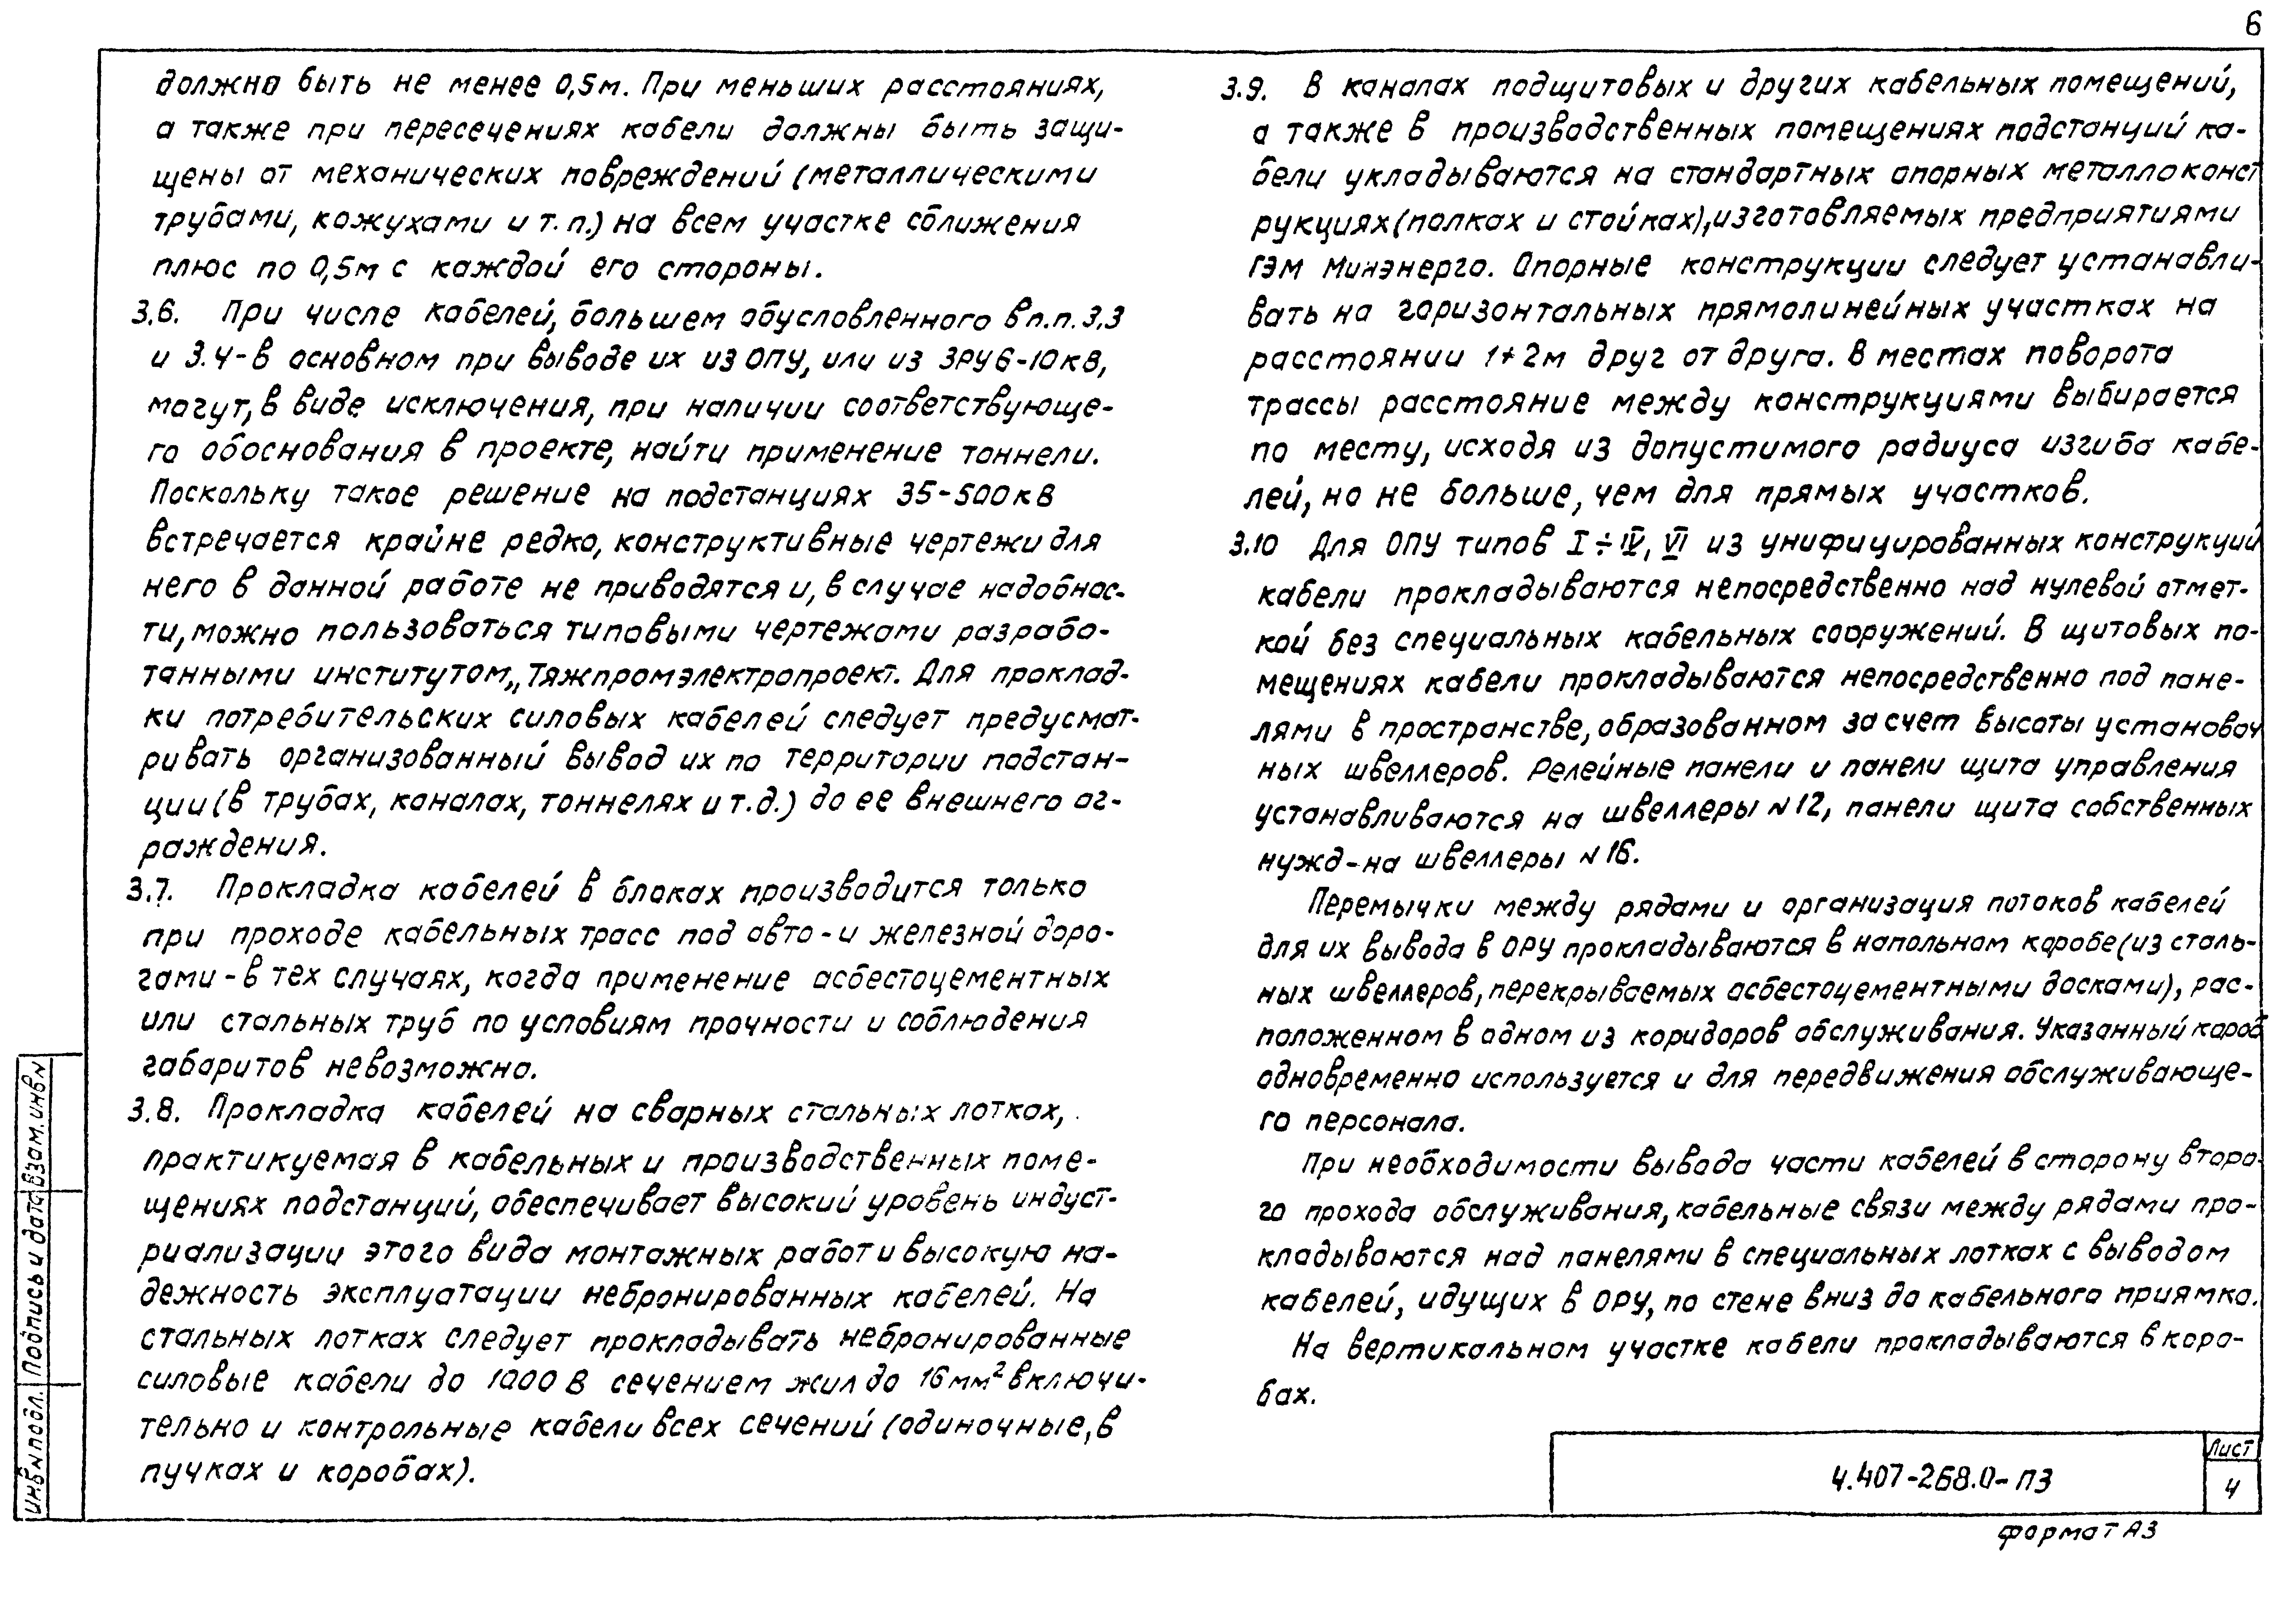 6
должно быть не менее 0,5м. При меньших расстояниях,
а также при пересечениях кабели должны быть защи-
щены от механических повреждений (металлическими
трубами, кожухами и т.п.) на всем участке сближения
плюс по 0,5м с каждой его стороны.
3.6. При числе кабелей, большем обусловленного в п.п. 3.3
и 3.4-в основном при выводе их из ОПУ, или из ЗРУ 6-10кВ,
могут, в виде исключения, при наличии соответствующе-
го обоснования в проекте, найти применение тоннели.
Поскольку такое решение на подстанциях 35-500кВ
встречается крайне редко, конструктивные чертежи для
него в данной работе не приводятся и, в случае надобнос-
ти, можно пользоваться типовыми чертежами разрабо-
танными институтом „Тяжпромэлектропроект. Для проклад-
ки потребительских силовых кабелей следует предусмат-
ривать организованный вывод их по территории подстан-
ции (в трубах, каналах, тоннелях и т.д.) до ее внешнего ог-
раждения.
3.7. Прокладка кабелей в блоках производится только
при проходе кабельных трасс под авто-и железной доро-
гами-в тех случаях, когда применение асбестоцементных
или стальных труб по условиям прочности и соблюдения
габаритов невозможно.
3.8. Прокладка кабелей на сварных стальных лотках,
практикуемая в кабельных и производственных поме-
щениях подстанций, обеспечивает высокий уровень индуст-
риализации этого вида монтажных работ и высокую на-
дежность эксплуатации небронированных кабелей. На
стальных лотках следует прокладывать небронированные
силовые кабели до 1000 В сечением жил до 16мм² включи-
тельно и контрольные кабели всех сечений (одиночные, в
пучках и коробах).
3.9. В каналах подщитовых и других кабельных помещений,
а также в производственных помещениях подстанций ка-
бели укладываются на стандартных опорных металлоконст
рукциях (полках и стойках), изготовляемых предприятиями
ГЭМ Минэнерго. Опорные конструкции следует устанавли-
вать на горизонтальных прямолинейных участках на
расстоянии 1÷2м друг от друга. В местах поворота
трассы расстояние между конструкциями выбирается
по месту, исходя из допустимого радиуса изгиба кабе-
лей, но не больше, чем для прямых участков.
3.10 Для ОПУ типов I÷IV, VI из унифицированных конструкций
кабели прокладываются непосредственно над нулевой отмет-
кой без специальных кабельных сооружений. В щитовых по-
мещениях кабели прокладываются непосредственно под пане-
лями в пространстве, образованном за счет высоты установоч
ных швеллеров. Релейные панели и панели щита управления
устанавливаются на швеллеры №12, панели щита собственных
нужд-на швеллеры №16.
Перемычки между рядами и организация потоков кабелей
для их вывода в ОРУ прокладываются в напольном коробе (из сталь-
ных швеллеров, перекрываемых асбестоцементными досками), рас-
положенном в одном из коридоров обслуживания. Указанный короб
одновременно используется и для передвижения обслуживающе-
го персонала.
При необходимости вывода части кабелей в сторону второ-
го прохода обслуживания, кабельные связи между рядами про-
кладываются над панелями в специальных лотках с выводом
кабелей, идущих в ОРУ, по стене вниз до кабельного приямка.
На вертикальном участке кабели прокладываются в коро-
бах.
4.407-268.0-ПЗ
Лист
4
формат А3
Инв.№ подл.
Подпись и дата
Взам. инв№